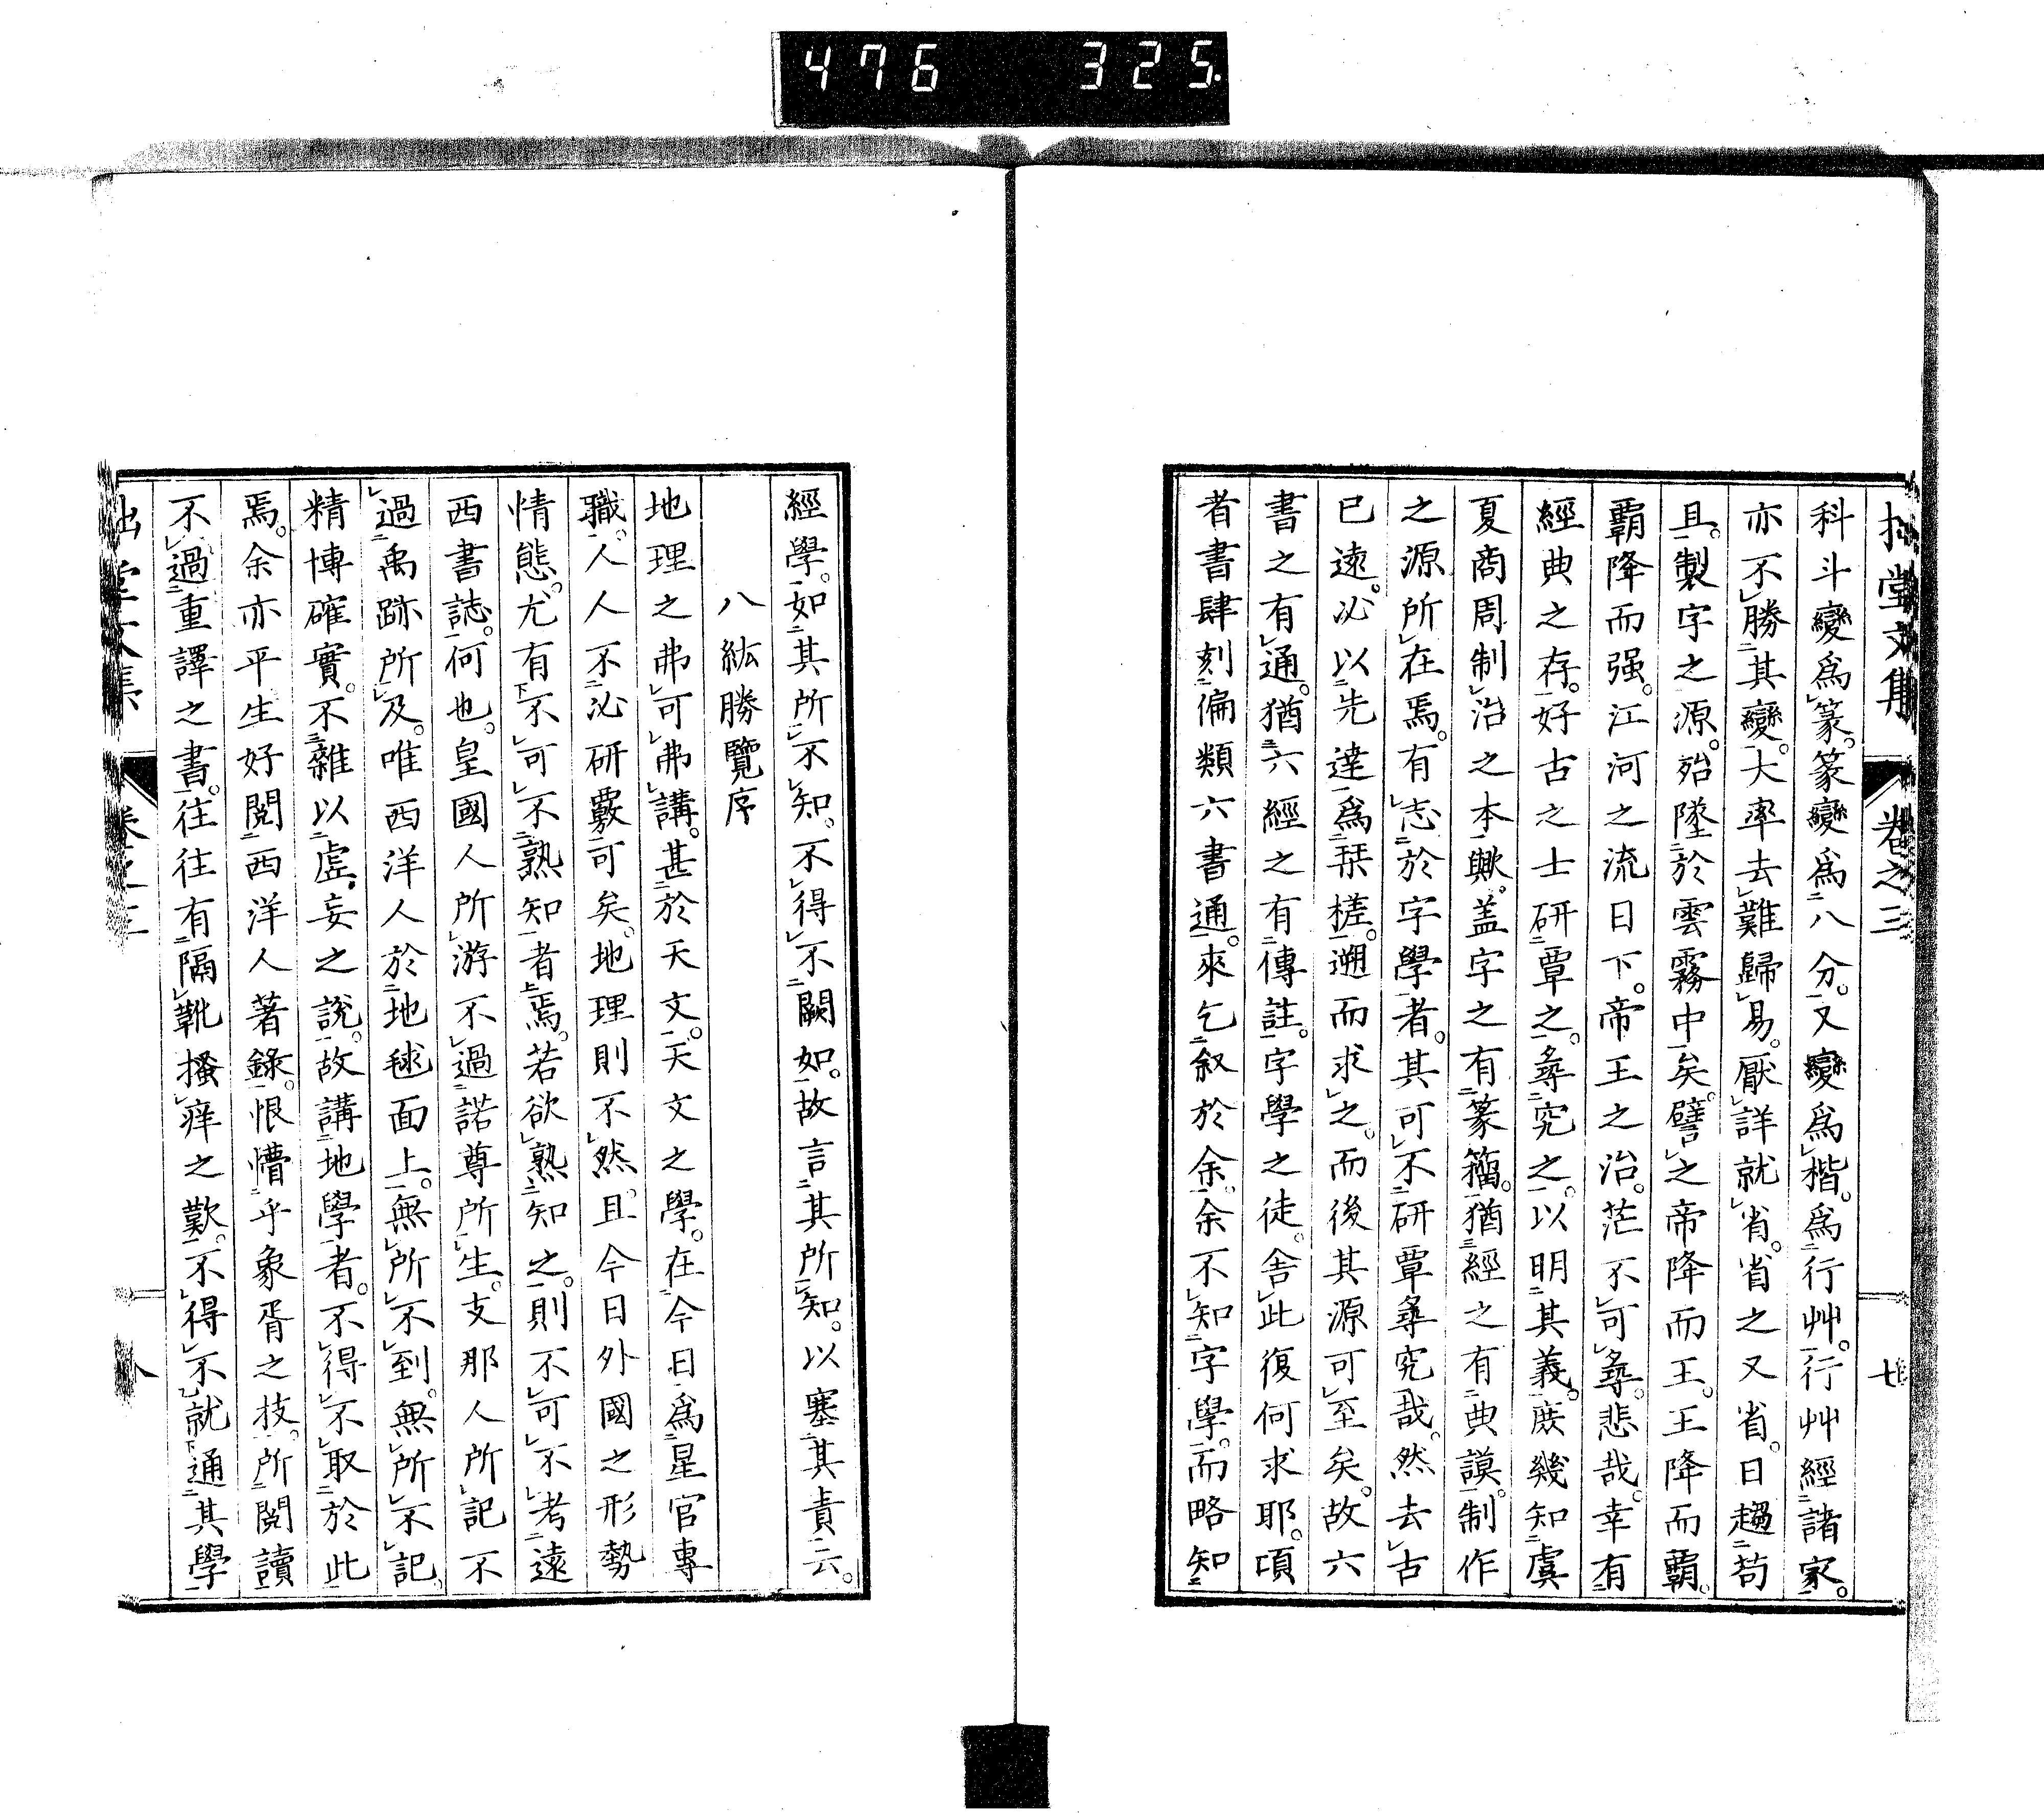 476 325
拙堂文集 卷之三 七
科斗變爲篆。篆變爲八分。又變爲楷。爲行艸。行艸經諸家。
亦不勝其變。大率去難歸易。厭詳就省。省之又省。日趨苟
且。製字之源。殆墜於雲霧中矣。譬之帝降而王。王降而霸。
霸降而强。江河之流日下。帝王之治。茫不可尋。悲哉。幸有
經典之存。好古之士研覃之。尋究之。以明其義。庶幾知虞
夏商周制治之本歟。盖字之有篆籀。猶經之有典謨。制作
之源所在焉。有志於字學者。其可不研覃尋究哉。然去古
已遠。必以先達爲栞槎。遡而求之。而後其源可至矣。故六
書之有通。猶六經之有傳註。字學之徒。舍此復何求耶。頃
者書肆刻偏類六書通。來乞叙於余。余不知字學。而略知
經學。如其所不知。不得不闕如。故言其所知。以塞其責云。
八紘勝覽序
地理之弗可弗講。甚於天文。天文之學。在今日爲星官專
職。人人不必研覈可矣。地理則不然。且今日外國之形勢
情態。尤有不可不熟知者焉。若欲熟知之。則不可不考遠
西書誌。何也。皇國人所游不過諾尊所生。支那人所記不
過禹跡所及。唯西洋人於地毬面上。無所不到。無所不記。
精博確實。不雜以虛妄之說。故講地學者。不得不取於此
焉。余亦平生好閱西洋人著錄。恨懵乎象胥之技。所閱讀
不過重譯之書。往往有隔靴搔痒之歎。不得不就通其學